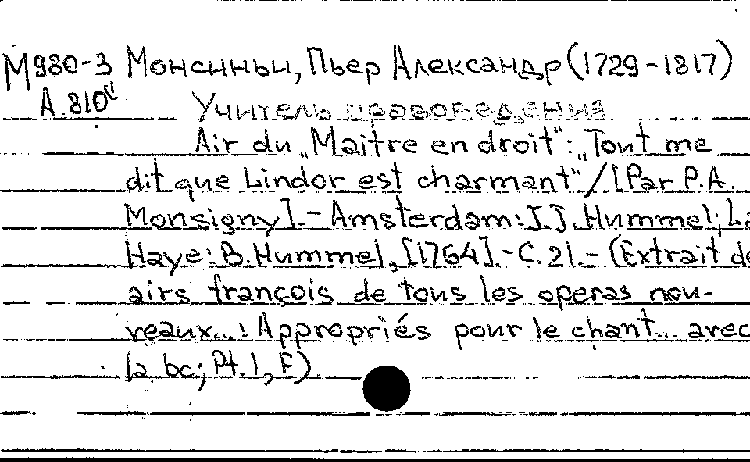 М980-3 Монсиньи, Пьер Александр (1729-1817)
А.810
Учитель правоведения
Air du „Maitre en droit": „Tout me
dit que Lindor est charmant" / [Par P.A.
Monsigny]. - Amsterdam: J.J. Hummel; La
Haye: B. Hummel, [1764]. - C. 21. - (Extrait de
airs françois de tous les operas nou-
veaux...: Appropriés pour le chant... avec
la bc; Pt. 1, F)